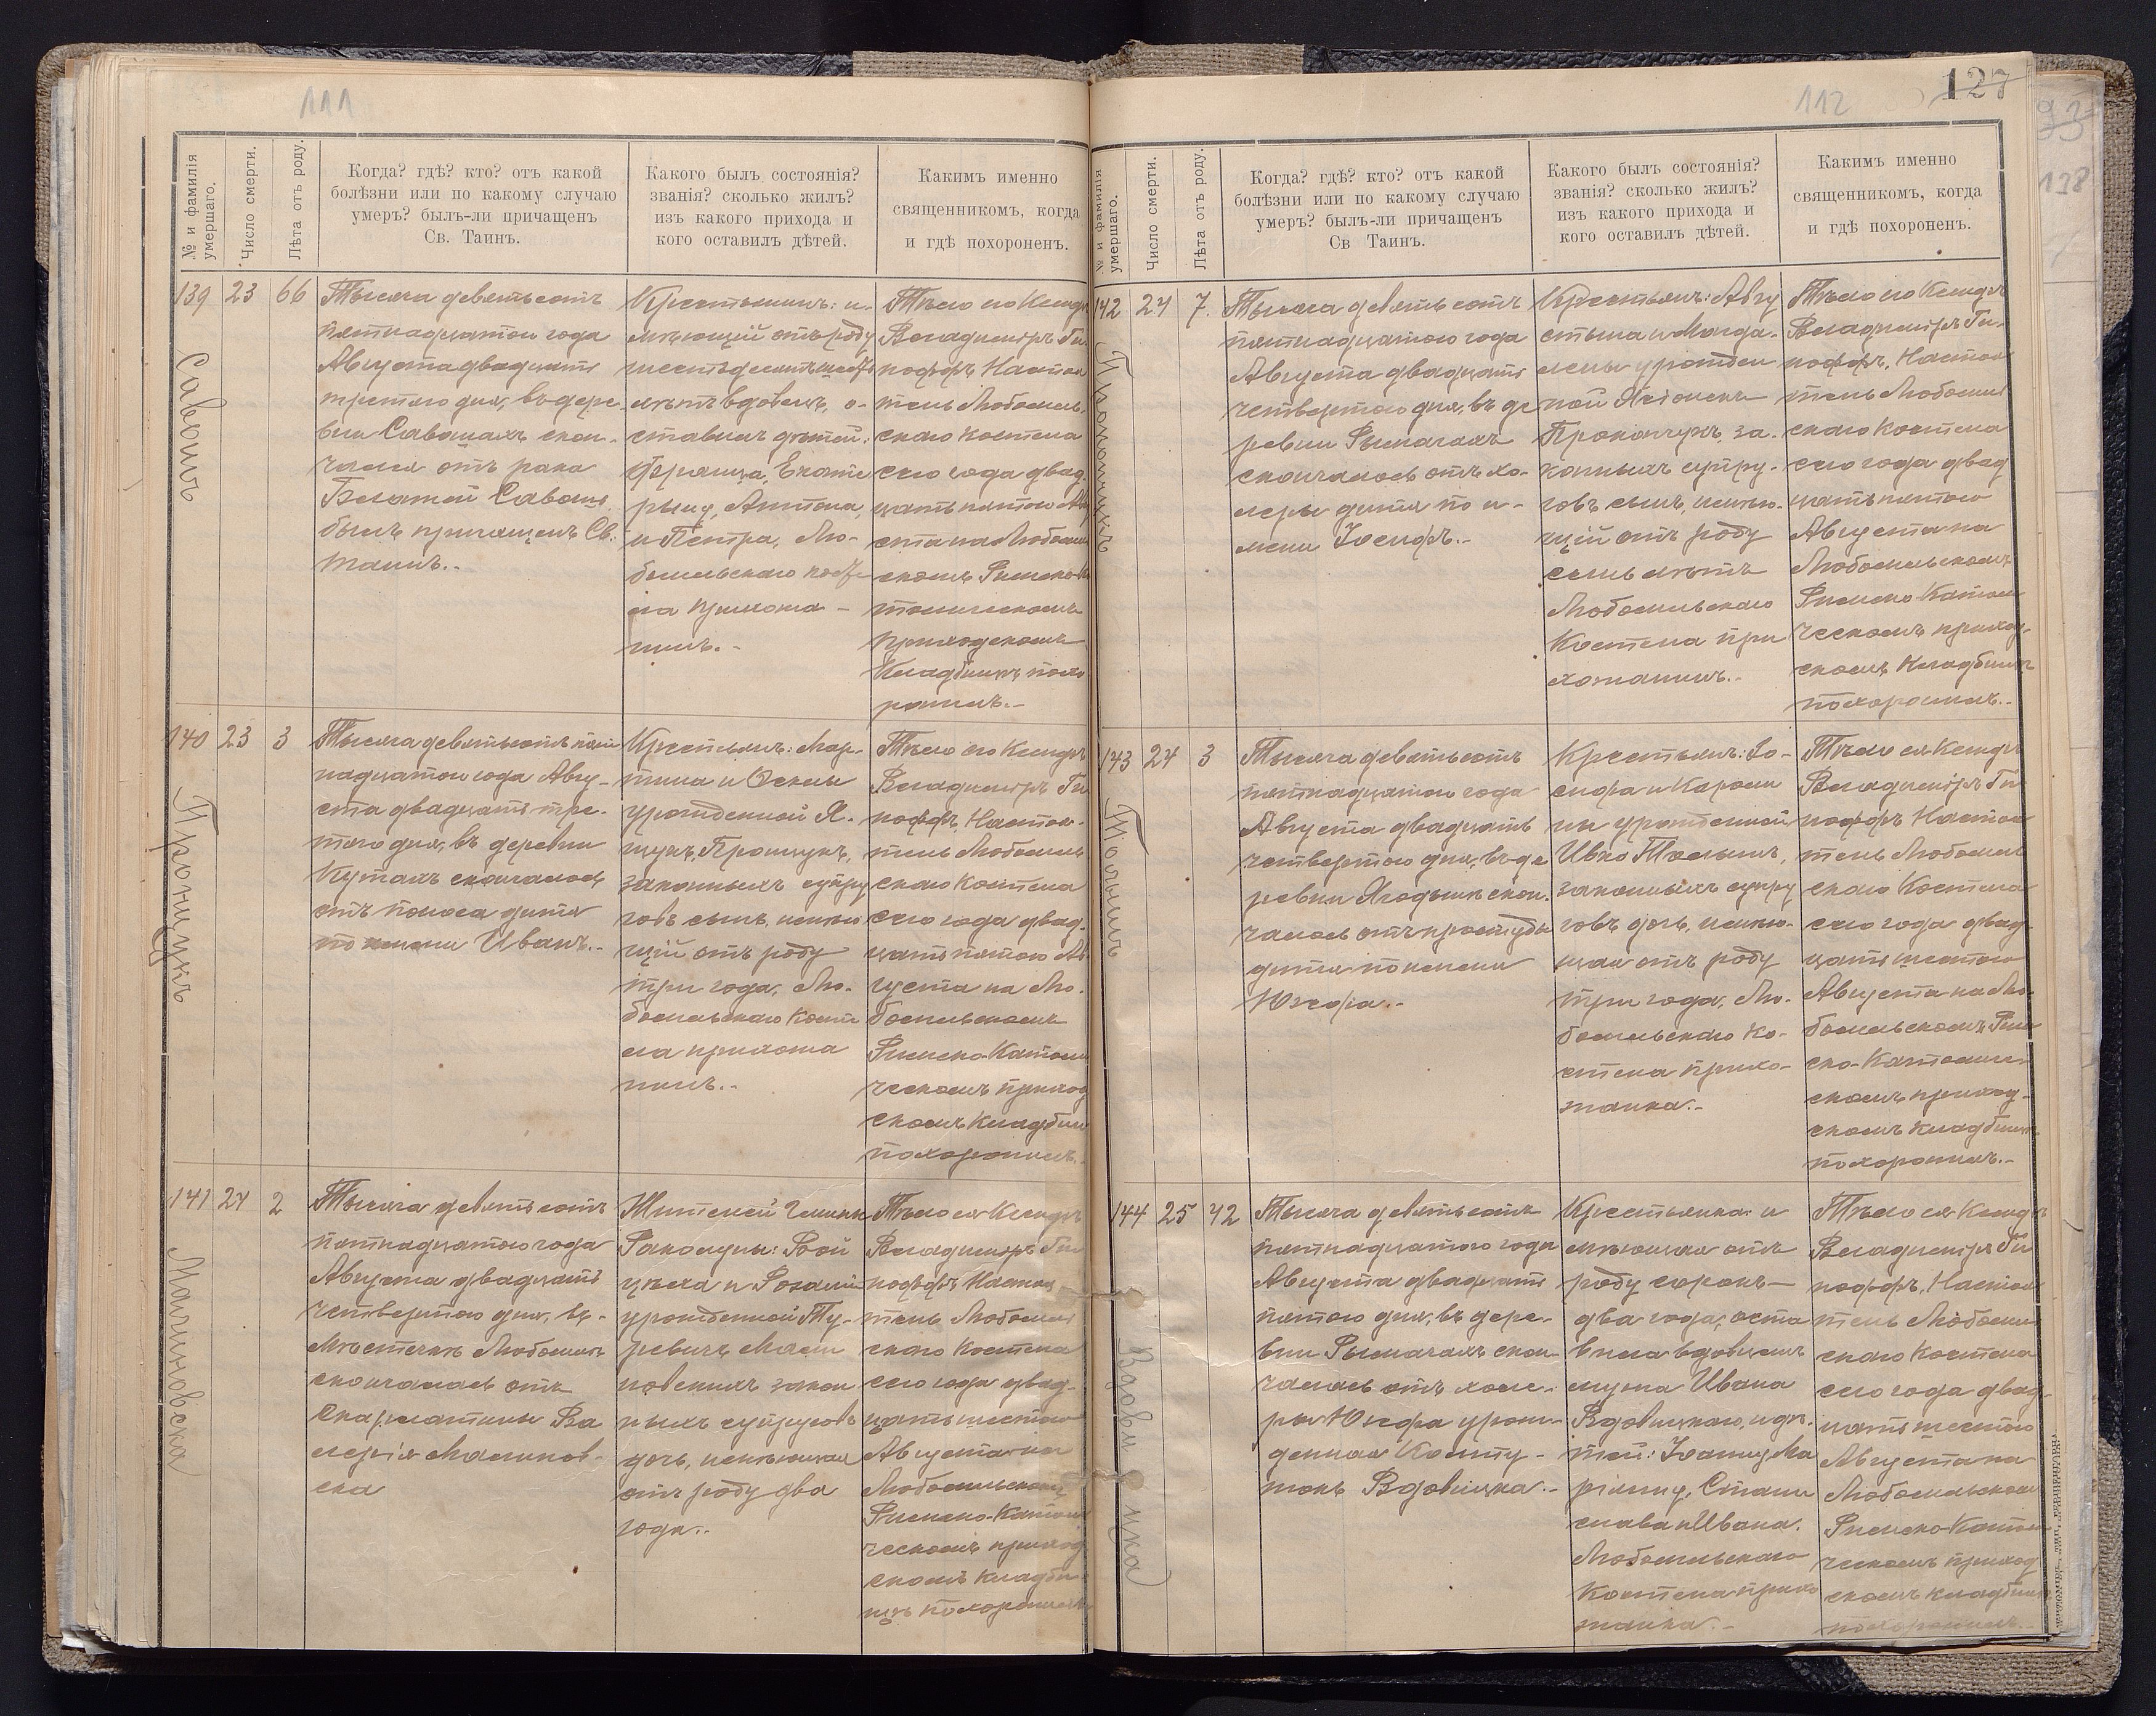 111
№ и фамилія умершаго.
Число смерти.
Лѣта отъ роду.
Когда? гдѣ? кто? отъ какой
болѣзни или по какому случаю
умеръ? былъ-ли причащенъ
Св. Таинъ.
Какого былъ состоянія?
званія? сколько жилъ?
изъ какого прихода и
кого оставилъ дѣтей.
Какимъ именно
священникомъ, когда
и гдѣ похороненъ.
139 23 66
Савошъ
Тысяча девятьсотъ
пятнадцатого года
Августа двадцать
третьего дня, въ дере
вни Савошахъ скон-
чался отъ рака
Савошъ
былъ причащенъ Св.
Таинъ.-
Крестьянинъ: и-
мѣющій отъ роду
шестьдесятъ шесть
лѣтъ вдовецъ, о-
ставилъ дѣтей:
Екате
рыну, Антона,
и Петра, Лю-
бомльскаго косте
ла прихожа-
нинъ.-
Тѣло его Ксендзъ
Владиміръ Ги
поффъ, Настоя
тель Любомль
скаго Костела
сего года двад
цать пятого Авгу
ста на Любомль
скомъ Римско-Ка
толическомъ
приходскомъ
Кладбищѣ похо
ронилъ.-
140 23 3
Пронщукъ
Тысяча девятьсотъ пят
надцатого года Авгу-
ста двадцать тре-
тьего дня, въ деревни
Кутахъ скончалось
отъ поноса дитя
по имени Иванъ.-
Крестьянъ: Мар-
тина и
урожденной Я-
щукъ, Пронщукъ,
законныхъ супру
говъ сынъ, имѣю
щій отъ роду
три года, Лю-
бомльскаго Косте
ла прихожа
нинъ.-
Тѣло его Ксендзъ
Владиміръ Ги
поффъ, Настоя-
тель Любомль
скаго Костела
сего года двад-
цать пятого Ав
густа на Лю-
бомльскомъ
Римско-Католи
ческомъ приход
скомъ Кладби
похоронилъ.-
141 24 2
Малиновска
Тысяча девятьсотъ
пятнадцатого года
Августа двадцать
четвертого дня, въ-
мѣстечкѣ Любомлѣ
скончалась отъ
скарлатины Ва
лерія Малинов-
ска
Жителей Гмины
Раколупы: Вой
цѣха и Розаліи
урожденной Ту-
ревичъ Мали
новскихъ закон
ныхъ супруговъ
дочь, имѣющая
отъ роду два
года.-
Тѣло ея Ксендзъ
Владиміръ Ги
поффъ, Настоя
тель Любомль
скаго Костела
сего года двад-
цать шестого
Августа на
Любомльскомъ
Римско-Катол
ческомъ приход
скомъ кладби
щѣ похоронилъ
112
127
93
138
№ и фамилія умершаго.
Число смерти.
Лѣта отъ роду.
Когда? гдѣ? кто? отъ какой
болѣзни или по какому случаю
умеръ? былъ-ли причащенъ
Св Таинъ.
Какого былъ состоянія?
званія? сколько жилъ?
изъ какого прихода и
кого оставилъ дѣтей.
Какимъ именно
священникомъ, когда
и гдѣ похороненъ.
142 24 7.
Прокопчукъ
Тысяча девятьсотъ
пятнадцатого года
Августа двадцать
четвертого дня, въ де
ревни Рымачахъ
скончалось отъ хо-
леры дитя по и-
мени Іосифъ.-
Крестьянъ: Авгу
стына и Магда-
лены урожден
ной
Прокопчукъ, за-
конныхъ супру-
говъ сынъ, имѣю-
щій отъ роду
семь лѣтъ
Любомльскаго
Костела при
хожанинъ.-
Тѣло его Ксендзъ
Владиміръ Ги-
поффъ, Настоя
тель Любомль
скаго Костела
сего года двад
цать пятого
Августа на
Любомльскомъ
Римско Католи
ческомъ приход-
скомъ Кладбищѣ
похоронилъ.-
143 24 3
Тысяча девятьсотъ
пятнадцатого года
Августа двадцать
четвертого дня, въ де
ревни Ягодынѣ скон-
чалось отъ простуды
дитя по имени
Юзефа.-
Крестьянъ: Іо-
сифа и Кароли
ны урожденной
Ивко
законныхъ супру
говъ дочь, имѣю-
щая отъ роду
три года, Лю-
бомльскаго Ко-
стела прихо-
жанка.-
Тѣло ея Ксендзъ
Владиміръ Ги
поффъ Настоя
тель Любомль
скаго Костела
сего года двад-
цать шестого
Августа на Лю-
бомльскомъ Рим
ско-Католиче-
скомъ приход-
скомъ кладбищѣ
похоронилъ.-
144 25 42
Вдовицка
Тысяча девятьсотъ
пятнадцатого года
Августа двадцать
пятого дня, въ дере-
вни Рымачахъ скон
чалась отъ холе-
ры Юзефа урож-
денная
Вдовицка.-
Крестьянка: и
мѣющая отъ
роду сорокъ-
два года, оста
вила вдовцемъ
мужа Ивана
Вдовицкаго, и дѣ-
тей: Іоанну, Ма
ріянну, Стани
слава и Ивана.
Любомльскаго
Костела прихо
жанка.-
Тѣло ея Ксендзъ
Владиміръ Ги
поффъ, Настоя
тель Любомль
скаго Костела
сего года двад-
цать шестого
Августа на
Любомльскомъ
Римско-Католи
ческомъ приход
скомъ кладбищѣ
похоронилъ.-